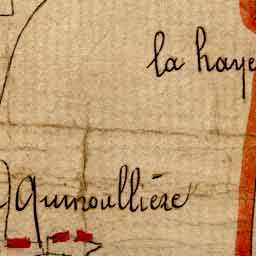 la haye
Quinoullière